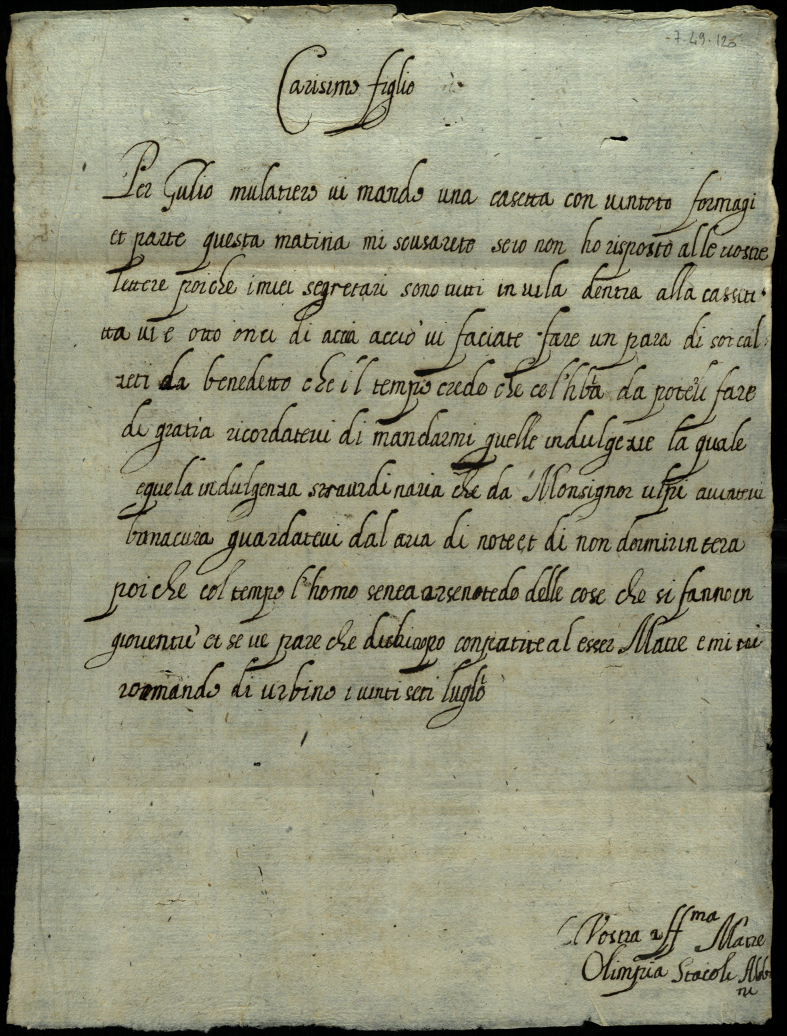 7-49-120
Carisimo figlio
Per Gulio mulatiero vi mando una casetta con vintoto formagi
et parte questa matina mi scusareto se io non ho risposto alle vostre
lettere poi che i miei segretari sono tutti in vila dentra alla cassiti
tta vi e otto onci di accio vi faciate fare un para di sotcal
zeti da benedetto che il tempo credo che cel'hba da poterli fare
di gratia ricordatevi di mandarmi quelle indulgezie la quale
e quela indulgenza straurdinaria che da Monsignor ulpi
bana cura guardatevi dal aria di note et di non dormir in tera
poi che col tempo l'homo delle cose che si fanno in
gioventu' et se ve pare che conpatite al esser Matre e mi
di urbino i vinti seti luglo
Vostra affma Matre
Olimpia Stacoli Alb
ni